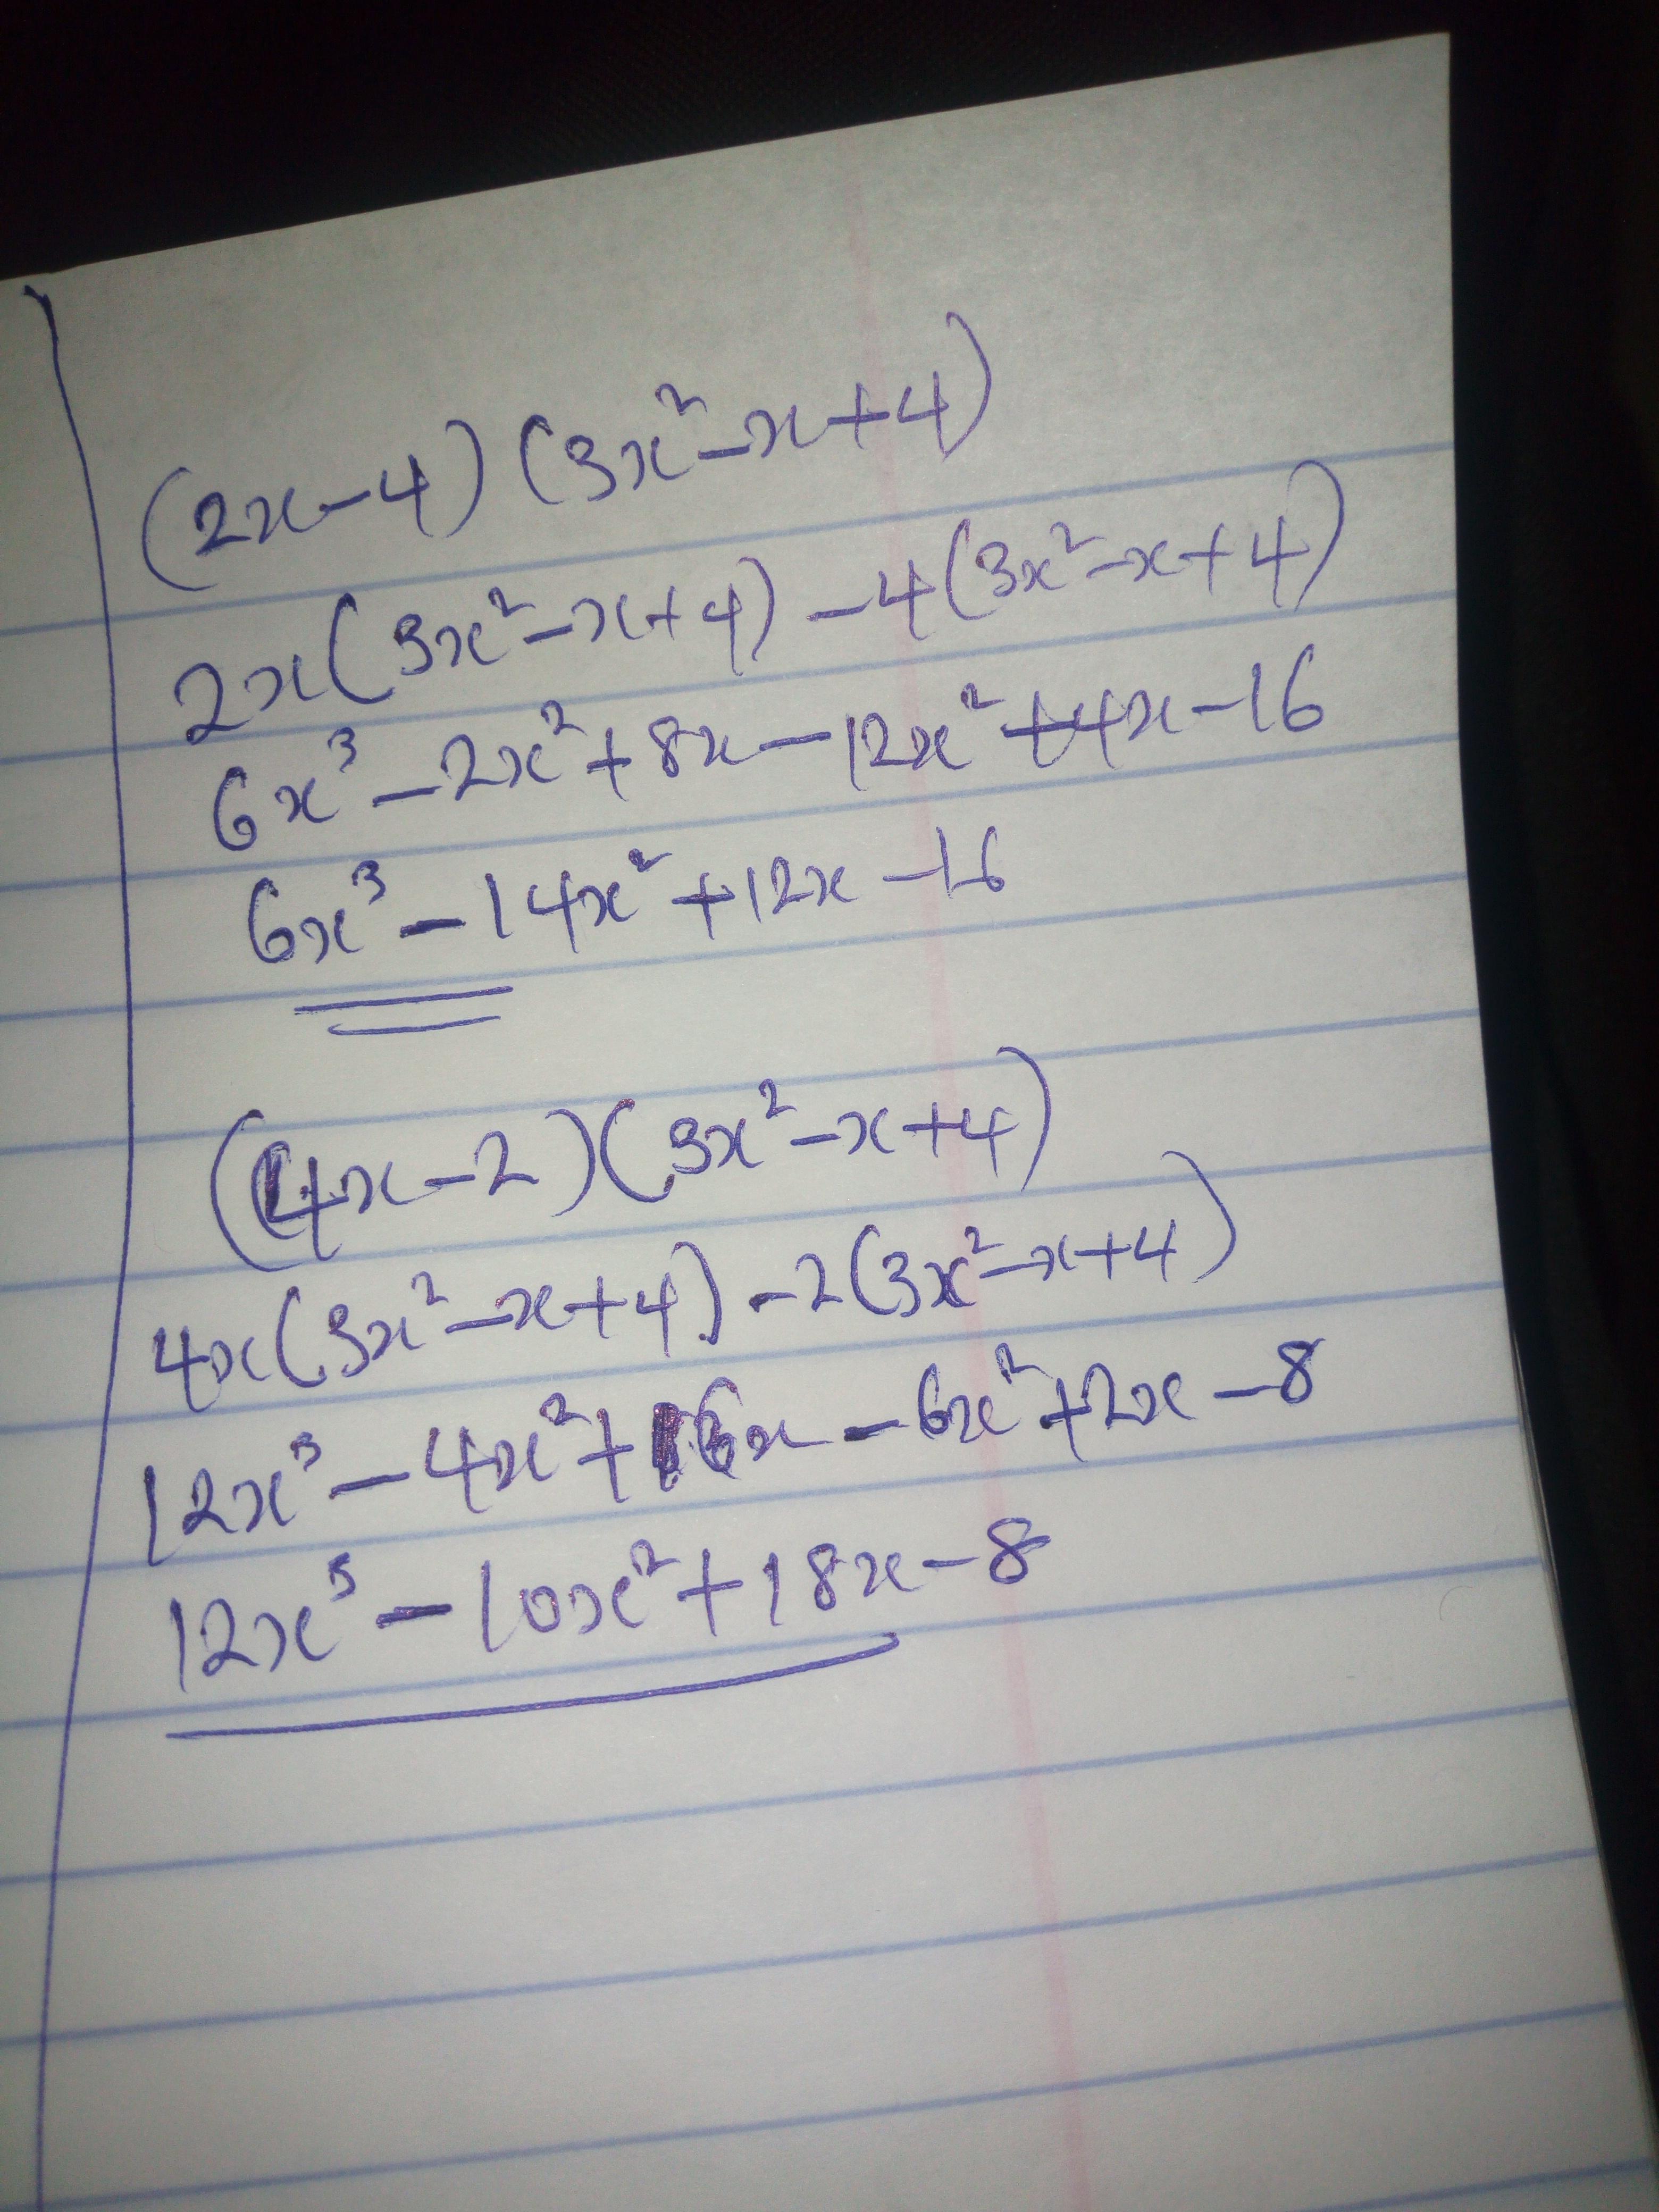 (2x-4)(3x²-x+4)
2x(3x²-x+4)-4(3x²-x+4)
6x³-2x²+8x-12x²+4x-16
6x³-14x²+12x-16
(4x-2)(3x²-x+4)
4x(3x²-x+4)-2(3x²-x+4)
12x³-4x²+16x-6x²+2x-8
12x³-10x²+18x-8